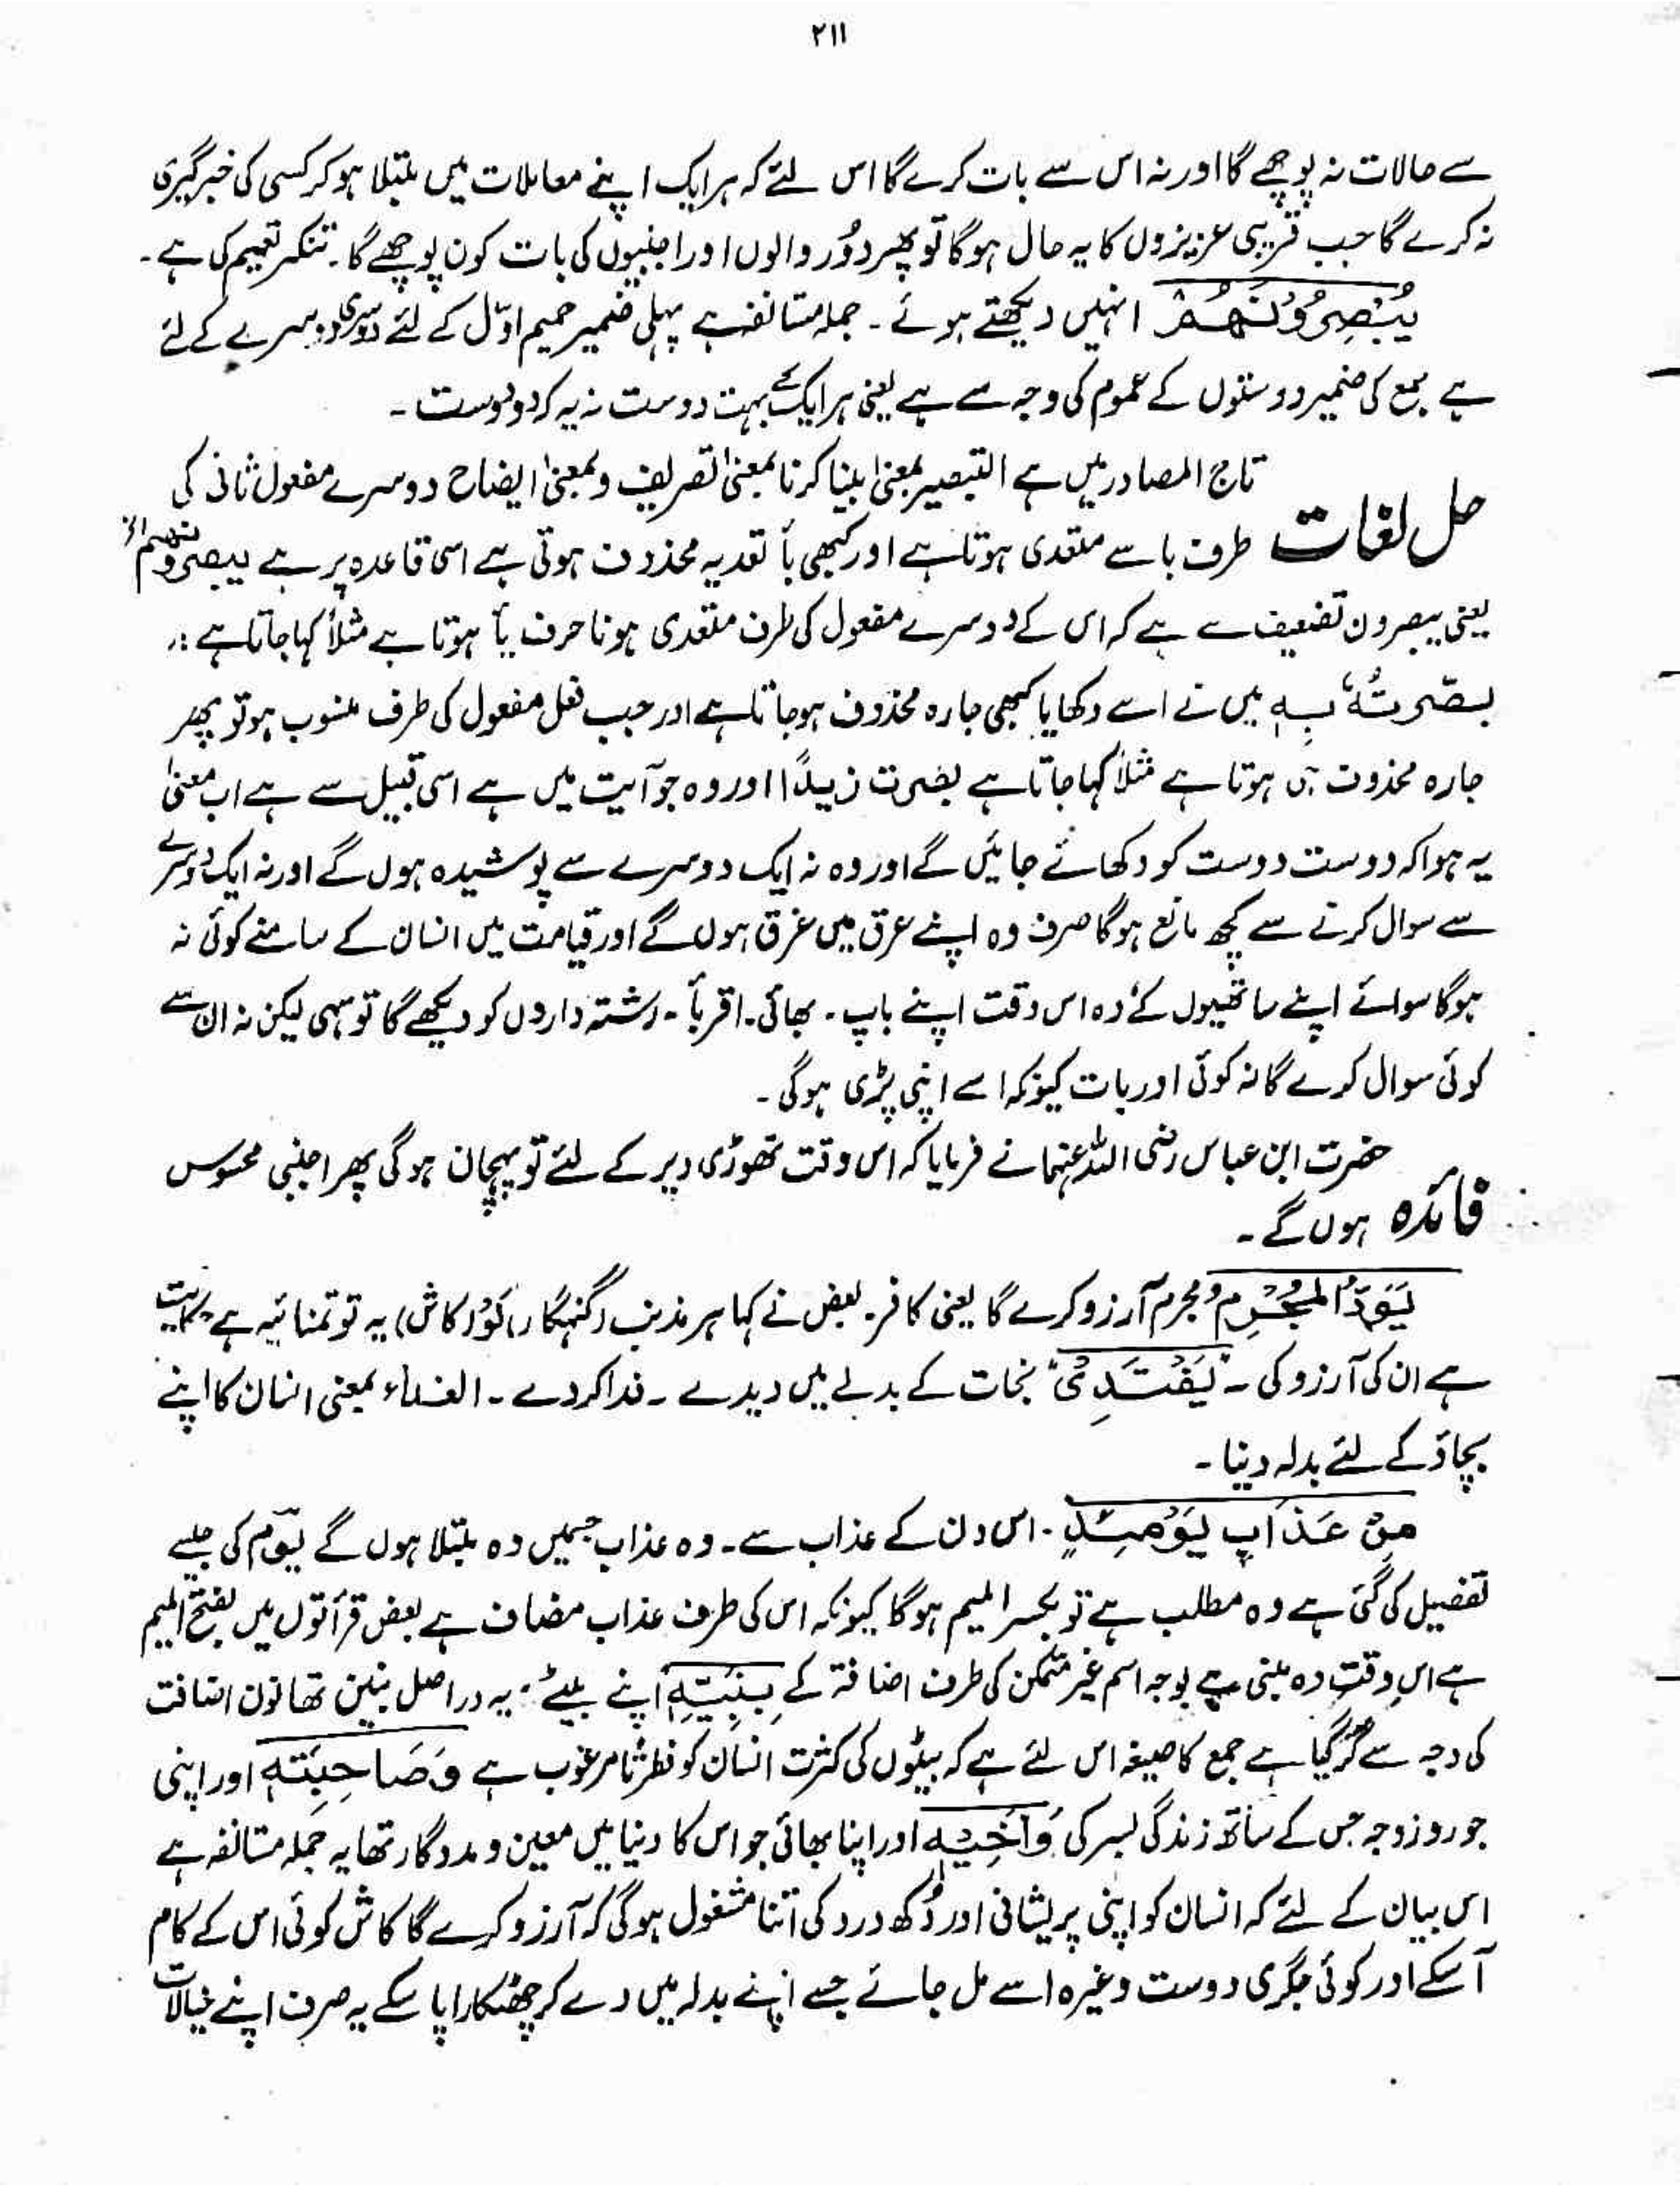 ۲۱۱
سے حالات نہ پوچھے گا اور نہ اس سے بات کرے گا اس لئے کہ ہر ایک اپنے معاملات میں مبتلا ہو کر کسی کی خبرگیری
نہ کرے گا جب قریبی عزیزوں کا یہ حال ہوگا تو پھر دُور والوں اور اجنبیوں کی بات کون پوچھے گا۔ تنکیر تعمیم کی ہے۔
يُبَصَّرُوْنَهُمْ انہیں دیکھتے ہوئے۔ جملہ مستانفہ ہے پہلی ضمیر حمیم اوّل کے لئے دوسری دوسرے کے لئے
ہے جمع کی ضمیر دوستوں کے عموم کی وجہ سے ہے یعنی ہر ایک کے بہت دوست نہ یہ کہ دو دوست۔
تاج المصادر میں ہے التبصیر بمعنیٰ بینا کرنا بمعنیٰ التعریف و بمعنیٰ ایضاح دوسرے مفعول ثانی کی
حل لغات طرف با سے متعدی ہوتا ہے اور کبھی بأ تعدیہ محذوف ہوتی ہے اسی قاعدہ پر ہے یبصرونھم از
یعنی یبصرون تضعیف سے ہے کہ اس کے دوسرے مفعول کی طرف متعدی ہونا حرف بأ ہوتا ہے مثلاً کہا جاتا ہے :۔
بصّرتُہٗ بِہٖ میں نے اسے دکھایا کبھی جارہ محذوف ہو جاتا ہے اور جب فعل مفعول کی طرف منسوب ہو تو پھر
جارہ محذوف ہی ہوتا ہے مثلاً کہا جاتا ہے بصرت زیدًا اور وہ جو آیت میں ہے اسی قبیل سے ہے اب معنیٰ
یہ ہوا کہ دوست دوست کو دکھائے جائیں گے اور وہ نہ ایک دوسرے سے پوشیدہ ہوں گے اور نہ ایک دوسرے
سے سوال کرنے سے کچھ مانع ہوگا صرف وہ اپنے عرق میں غرق ہوں گے اور قیامت میں انسان کے سامنے کوئی نہ
ہوگا سوائے اپنے ساتھیوں کے وہ اس وقت اپنے باپ۔ بھائی۔ اقربأ۔ رشتہ داروں کو دیکھے گا تو سہی لیکن نہ ان سے
کوئی سوال کرے گا نہ کوئی اور بات کیونکہ اسے اپنی پڑی ہوگی۔
حضرت ابن عباس رضی اللہ عنہما نے فرمایا کہ اس وقت تھوڑی دیر کے لئے تو پہچان ہوگی پھر اجنبی محسوس
فائدہ ہوں گے۔
یَوَدُّ الْمُجْرِمُ مجرم آرزو کرے گا یعنی کافر۔ بعض نے کہا ہر مذنب (گنہگار) لَوْ (کاش) یہ تو تمنائیہ ہے حکایت
ہے ان کی آرزو کی۔ یَفْتَدِیْ نجات کے بدلے میں دیدے۔ فدا کر دے۔ الفداء بمعنی انسان کا اپنے
بچاؤ کے لئے بدلہ دینا۔
مِنْ عَذَابِ یَوْمِئِذٍ۔ اس دن کے عذاب سے۔ وہ عذاب جسمیں وہ مبتلا ہوں گے یوم کی جیسے
تفصیل کی گئی ہے وہ مطلب ہے تو بکسر المیم ہوگا کیونکہ اس کی طرف عذاب مضاف ہے بعض قرأتوں میں بفتح المیم
ہے اس وقت وہ مبنی ہے بوجہ اسم غیر متمکن کی طرف اضافۃ کے بِبَنِیْہِ اپنے بیٹے۔ یہ دراصل بنین تھا نون اضافت
کی وجہ سے گر گیا ہے جمع کا صیغہ اس لئے ہے کہ بیٹوں کی کثرت انسان کو فطرتًا مرغوب ہے وَصَاحِبَتِہٖ اور اپنی
جورو زوجہ جس کے ساتھ زندگی بسر کی وَاَخِیْہِ اور اپنا بھائی جو اس کا دنیا میں معین و مددگار تھا یہ جملہ مستانفہ ہے
اس بیان کے لئے کہ انسان کو اپنی پریشانی اور دُکھ درد کی اتنا مشغول ہوگی کہ آرزو کرے گا کاش کوئی اس کے کام
آسکے اور کوئی جگری دوست وغیرہ اسے مل جائے جسے اپنے بدلہ میں دے کر چھٹکارا پا سکے یہ صرف اپنے خیالات